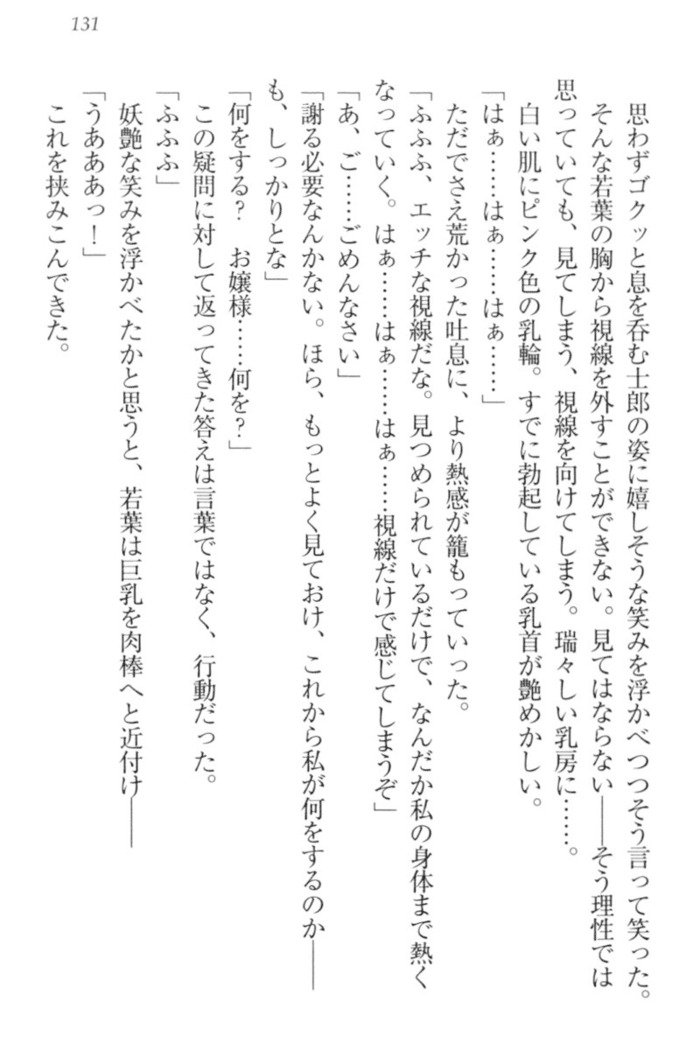 131
思わずゴクッと息を呑む士郎の姿に嬉しそうな笑みを浮かべつつそう言って笑った。
そんな若葉の胸から視線を外すことができない。見てはならない――そう理性では
思っていても、見てしまう、視線を向けてしまう。瑞々しい乳房に……。
白い肌にピンク色の乳輪。すでに勃起している乳首が艶めかしい。
「はぁ……はぁ……はぁ……」
ただでさえ荒かった吐息に、より熱感が籠もっていった。
「ふふふ、エッチな視線だな。見つめられているだけで、なんだか私の身体まで熱く
なっていく。はぁ……はぁ……はぁ……視線だけで感じてしまうぞ」
「あ、ご……ごめんなさい」
「謝る必要なんかない。ほら、もっとよく見ておけ、これから私が何をするのか――
も、しっかりとな」
「何をする？　お嬢様……何を？」
この疑問に対して返ってきた答えは言葉ではなく、行動だった。
「ふふふ」
妖艶な笑みを浮かべたかと思うと、若葉は巨乳を肉棒へと近付け――
「うあああっ！」
これを挟みこんできた。